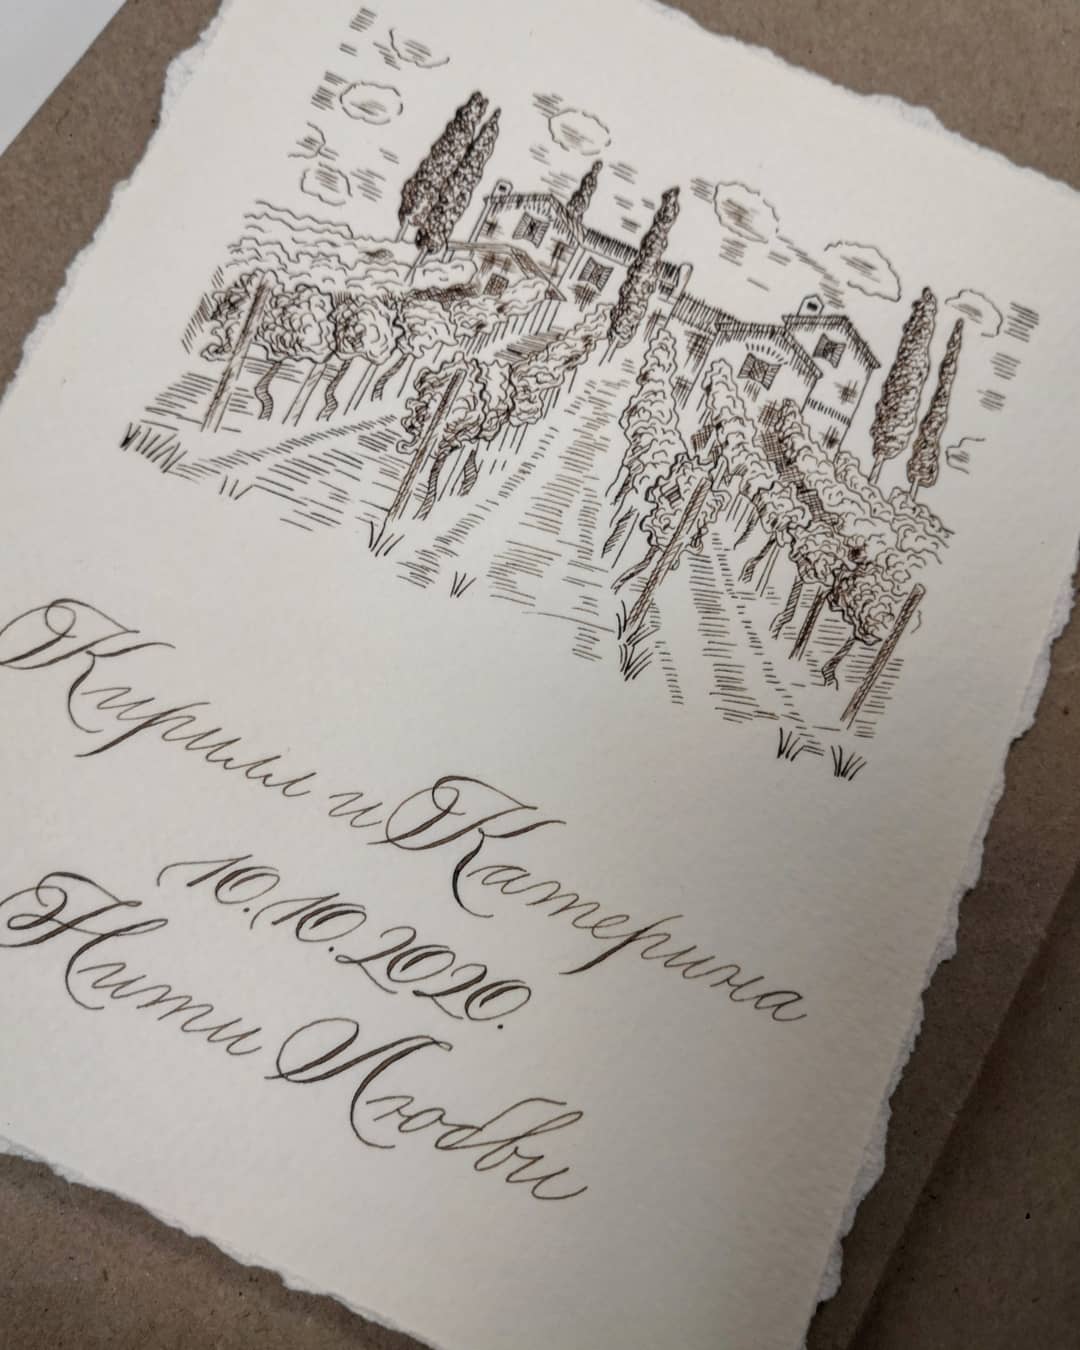 Кирилл и Катерина
10.10.2020.
Нити Любви